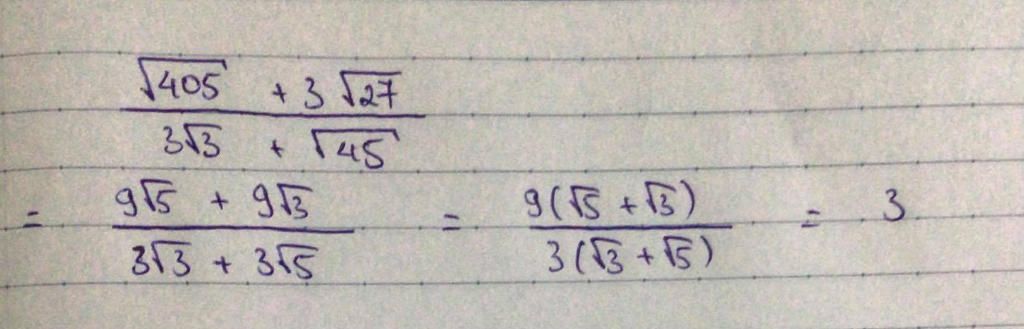 (√405 + 3√27) / (3√3 + √45)
= (9√5 + 9√3) / (3√3 + 3√5) = 9(√5 + √3) / 3(√3 + √5) = 3